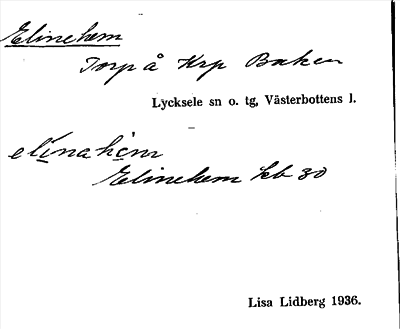 Elinehem
Torp å Krp Baken
Lycksele sn o. tg, Västerbottens l.
elinahem
Elinehem kb 30
Lisa Lidberg 1936.